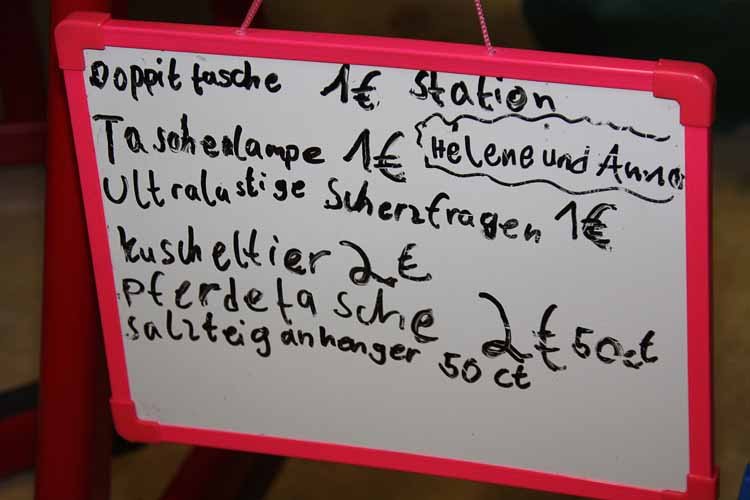 Doppittasche 1€ Station
Taschenlampe 1€ Helene und Anna
Ultralustige Scherzfragen 1€
Kuscheltier 2€
Pferdetasche 2€ 50ct
Salzteiganhenger 50 ct